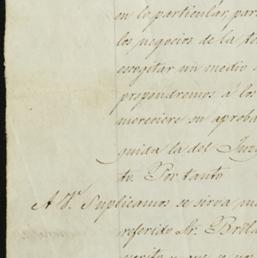 en lo particular, par
los negocios de la te
escogitar un medio
propondremos á los
mereciere su aproba
guida la del Juzg
to. Por tanto
A V. Suplicamos se sirva m
referido Sr. Brito